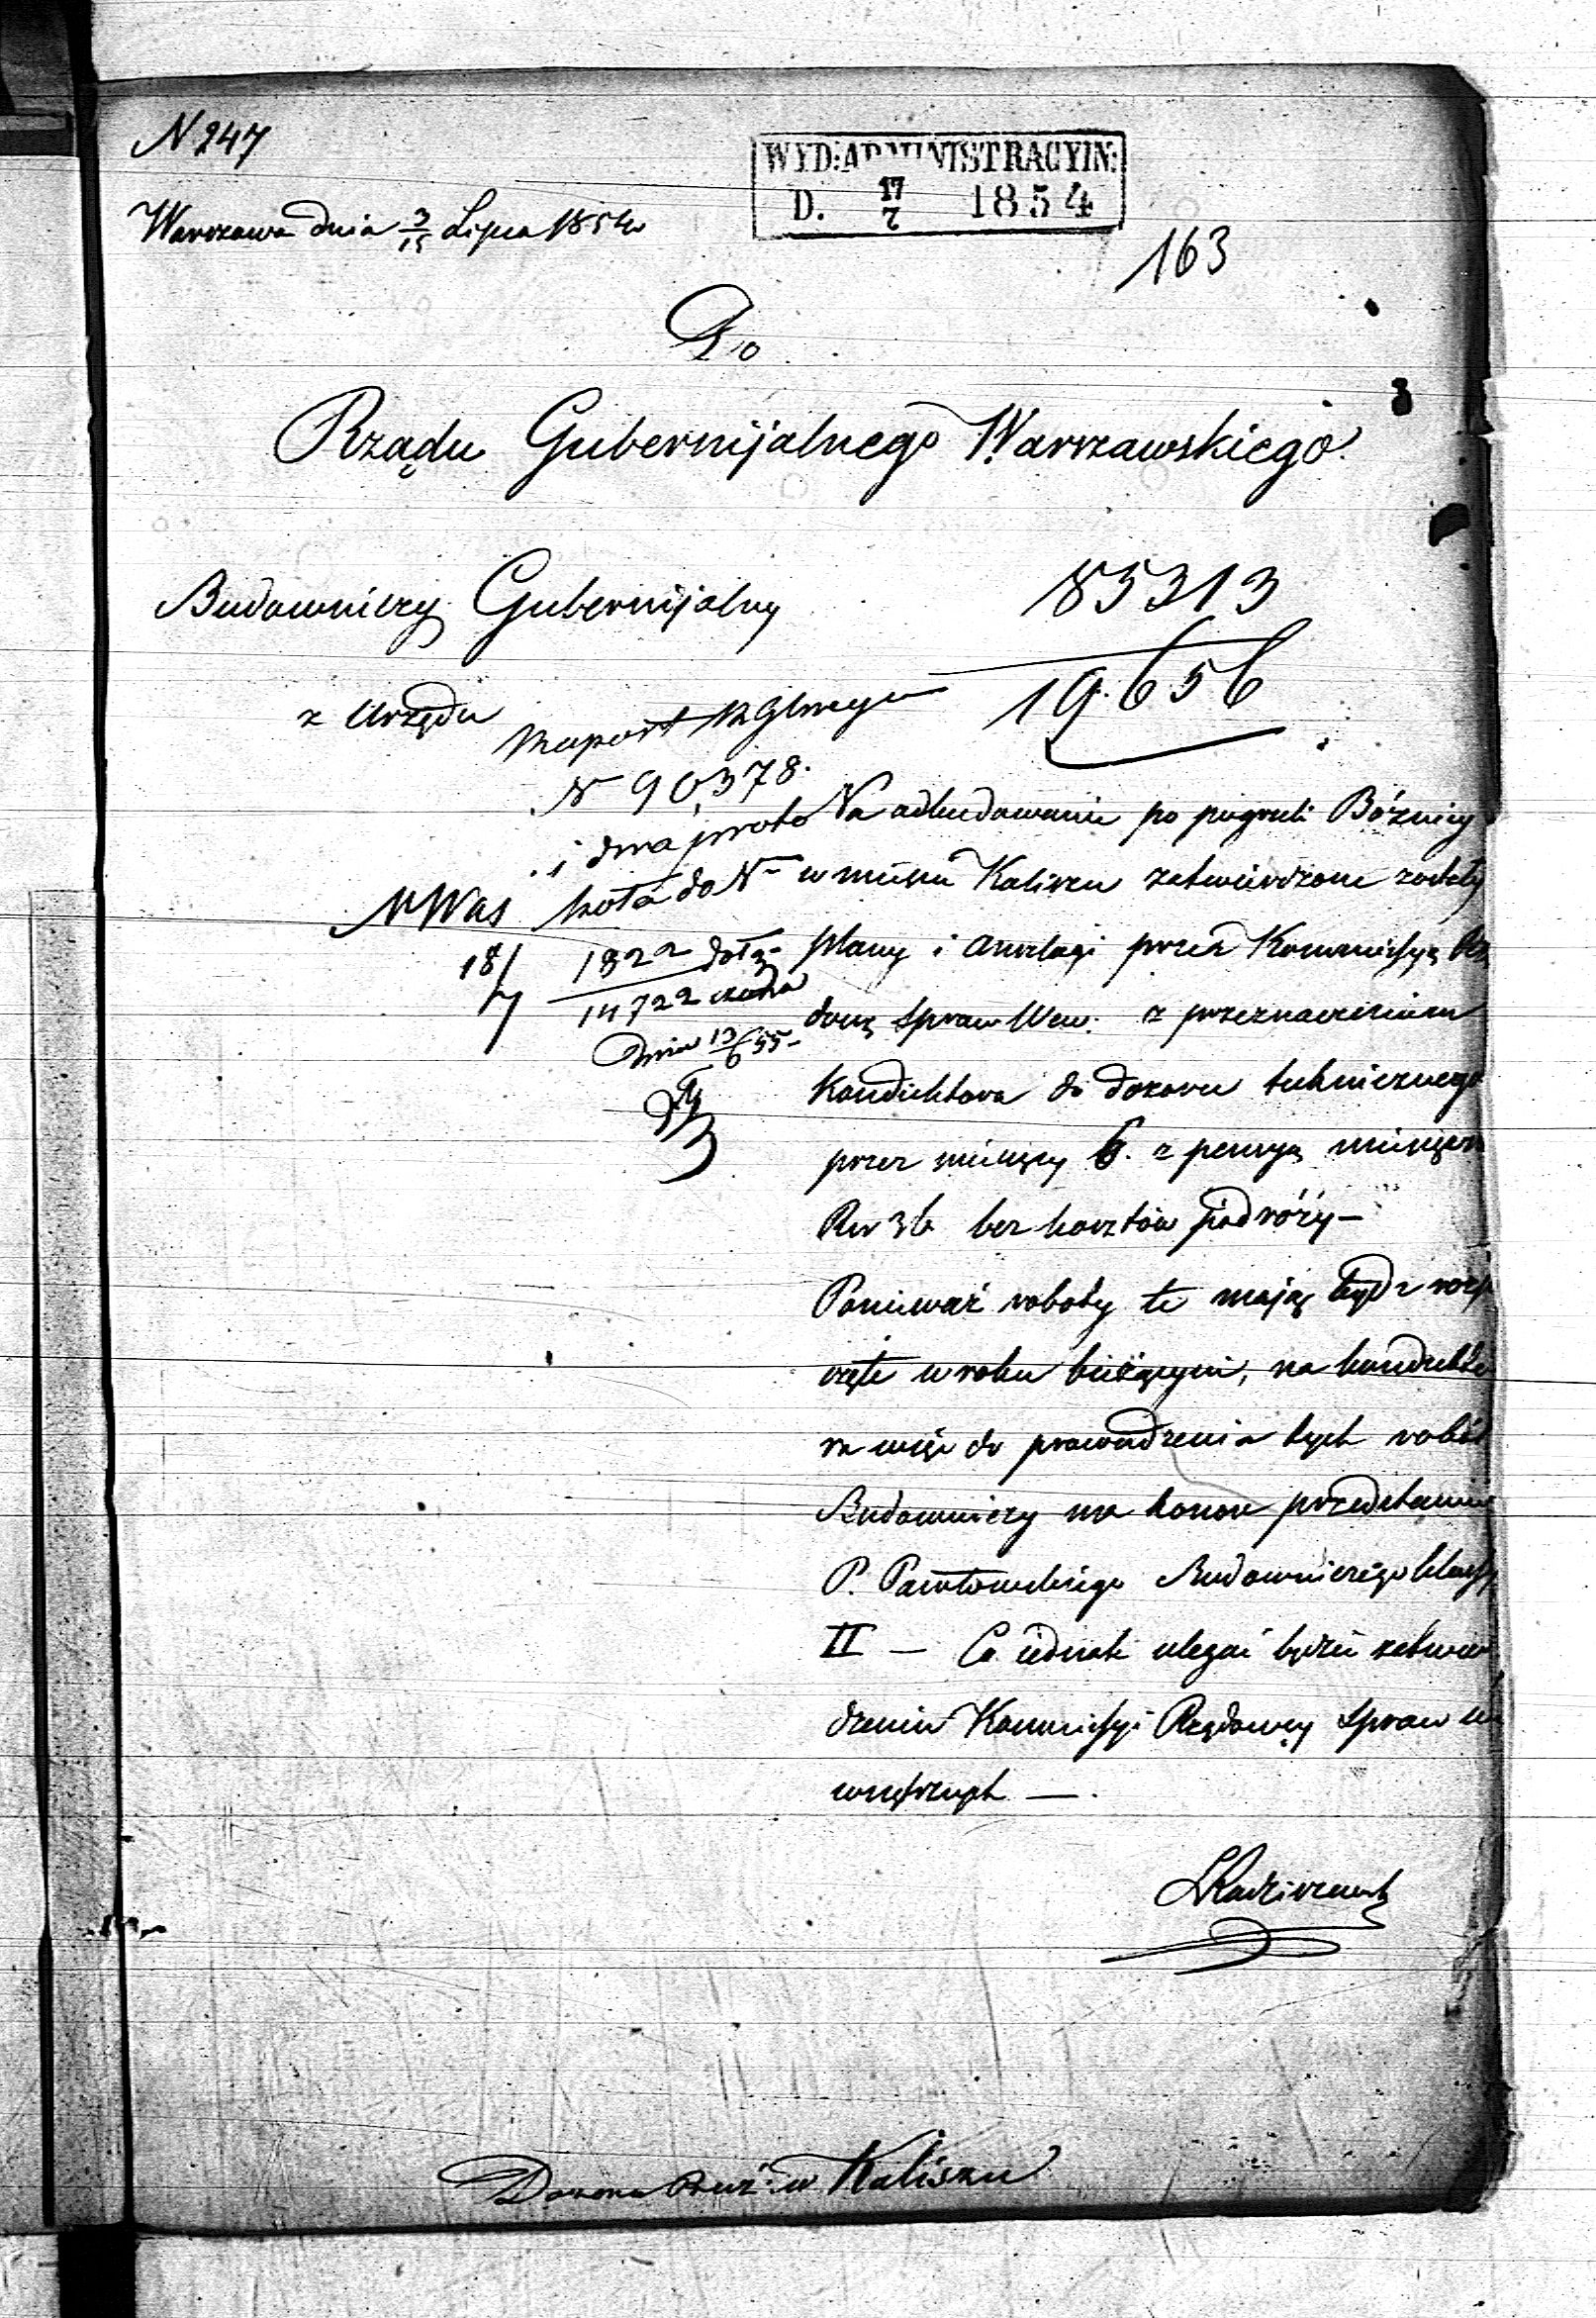 N 247
WYD: ADMINISTRACYIN:
D. 17/7 1854
Warszawa dnia 3/15 Lipca 1854
163
Do
Rządu Gubernijalnego Warszawskiego.
Budowniczy Gubernijalny
85313
19656
z Urzędu
Raport
N 90,378.
i dwa proto
koła do N
1822 dołą-
14722
dnia 13/6 55-
18/7
Na odbudowanie po pogorzeli Bóżnicy
w mieście Kaliszu zatwierdzone zostały
plany i anszlagi przez Kommissyą Rzą
dową Spraw Wew: z przeznaczeniem
Konduktora do dozoru technicznego
przez miesięcy 6. z pensyą miesięcz
Rsr 36 bez kosztów podróży—
Ponieważ roboty te mają bydź rozp
częte w roku bieżącym, na kondukto
ra więc do prowadzenia tych robót
Budowniczy ma honor przedstawić
P. Pawłowskiego Budowniczego klassy
II — Co jednak ulegać będzie zatwier
dzeniu Kommissyi Rządowéy Spraw We
wnętrznych —.
Dozoru Bóż: w Kaliszu